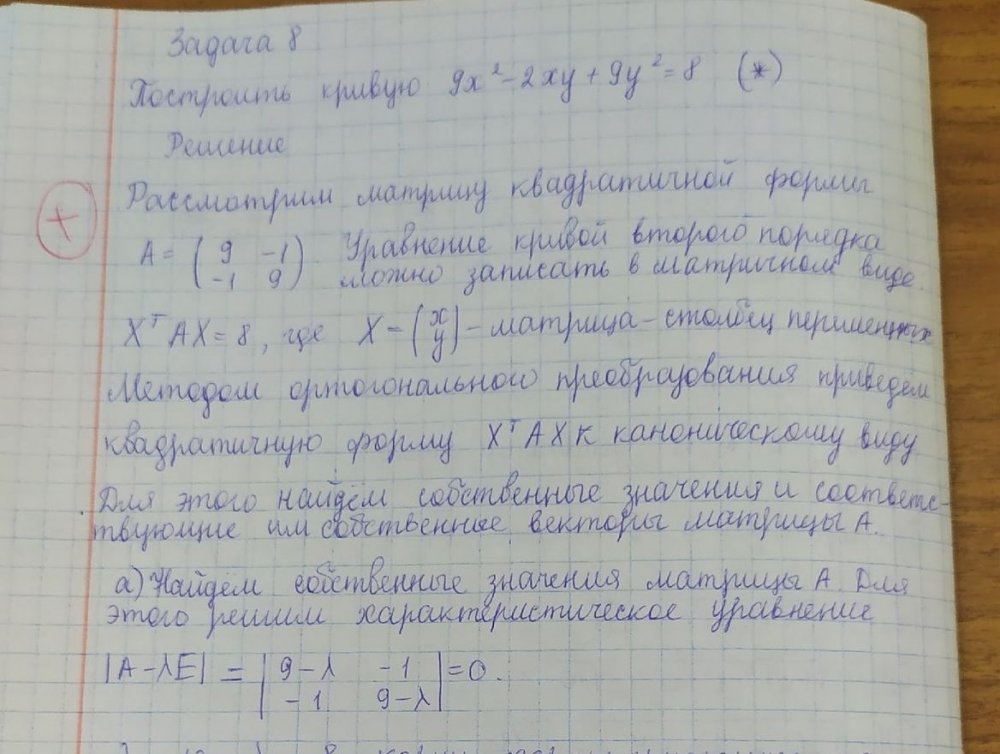 Задача 8
Построить кривую 9x² - 2xy + 9y² = 8 (*)
Решение
Рассмотрим матрицу квадратичной формы
+
A = ( 9 -1 ) Уравнение кривой второго порядка
( -1 9 ) можно записать в матричном виде.
XᵀAX = 8, где X = ( x y ) - матрица - столбец переменных
Методом ортогонального преобразования приведём
квадратичную форму XᵀAX к каноническому виду
Для этого найдём собственные значения и соответс-
твующие им собственные векторы матрицы A.
а) Найдём собственные значения матрицы A. Для
этого решим характеристическое уравнение
|A - λE| = | 9-λ -1 | = 0.
| -1 9-λ |